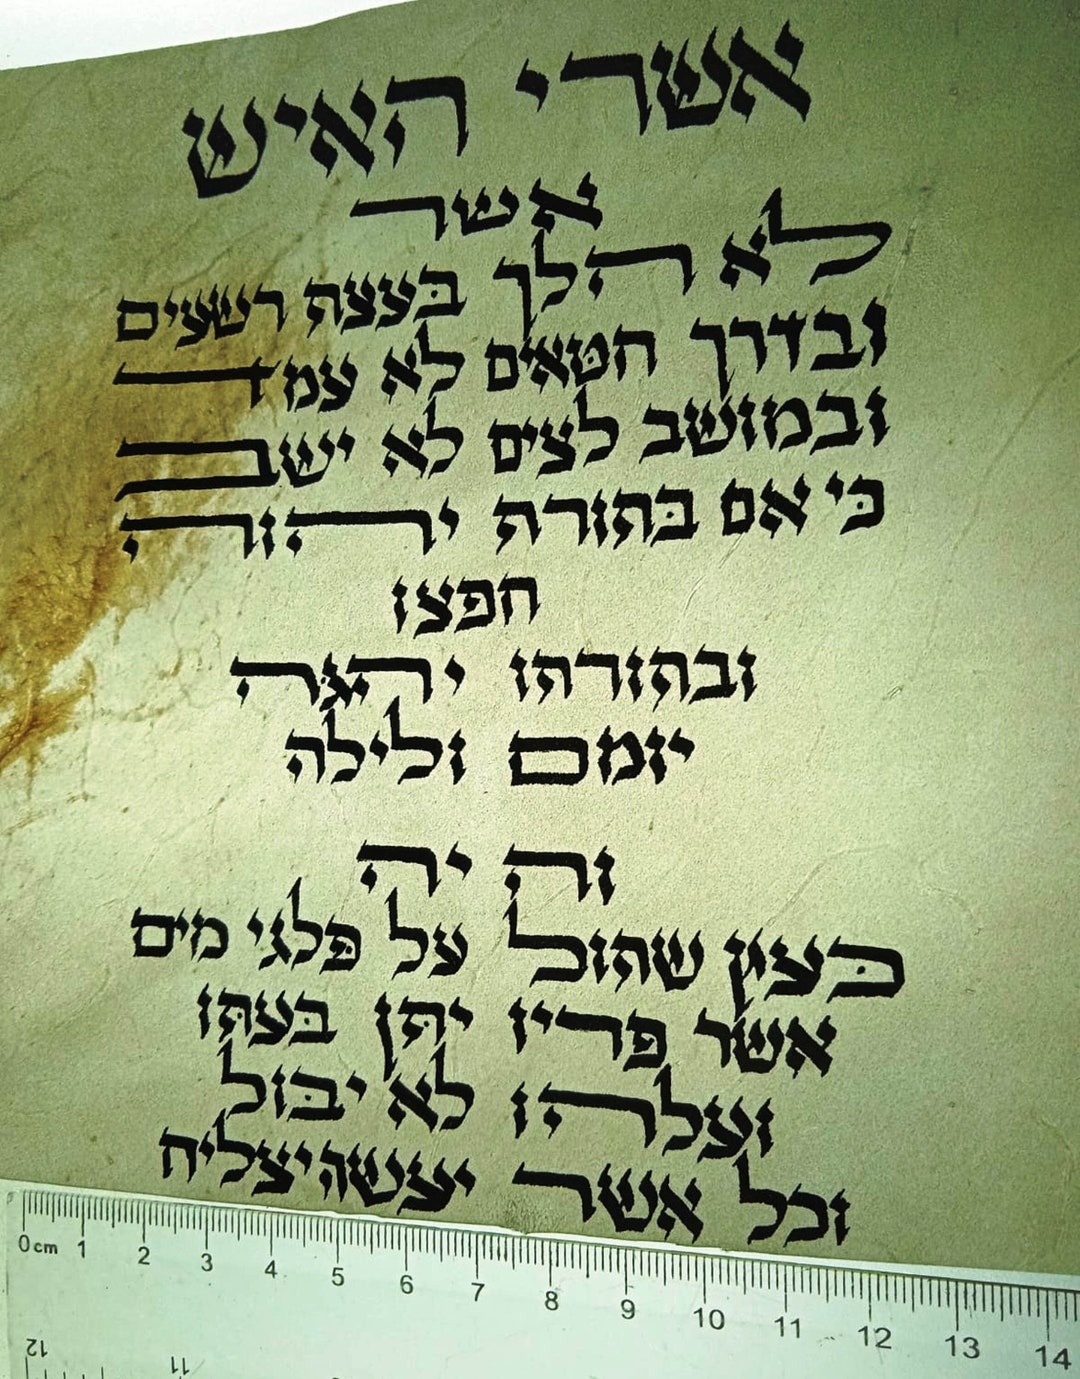 אשרי האיש
אשר
לא הלך בעצת רשעים
ובדרך חטאים לא עמד
ובמושב לצים לא ישב
כי אם בתורת יהוה
חפצו
ובתורתו יהגה
יומם ולילה
והיה
כעץ שתול על פלגי מים
אשר פריו יתן בעתו
ועלהו לא יבול
וכל אשר יעשה יצליח
0cm 1 2 3 4 5 6 7 8 9 10 11 12 13 14
12 11